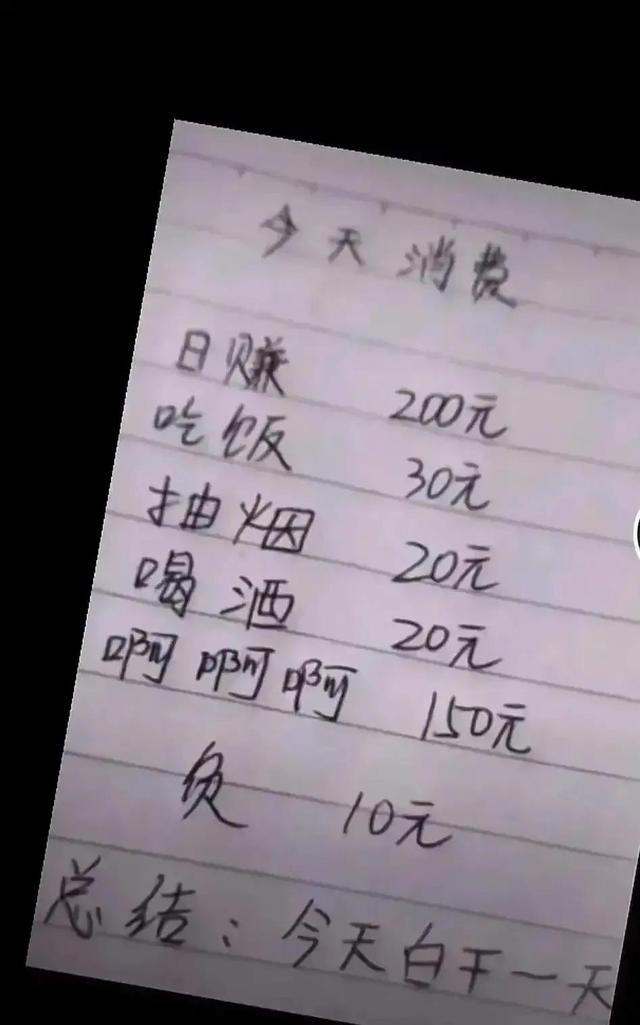 今天消费
日赚 200元
吃饭 30元
抽烟 20元
喝酒 20元
啊啊啊 150元
负 10元
总结：今天白干一天